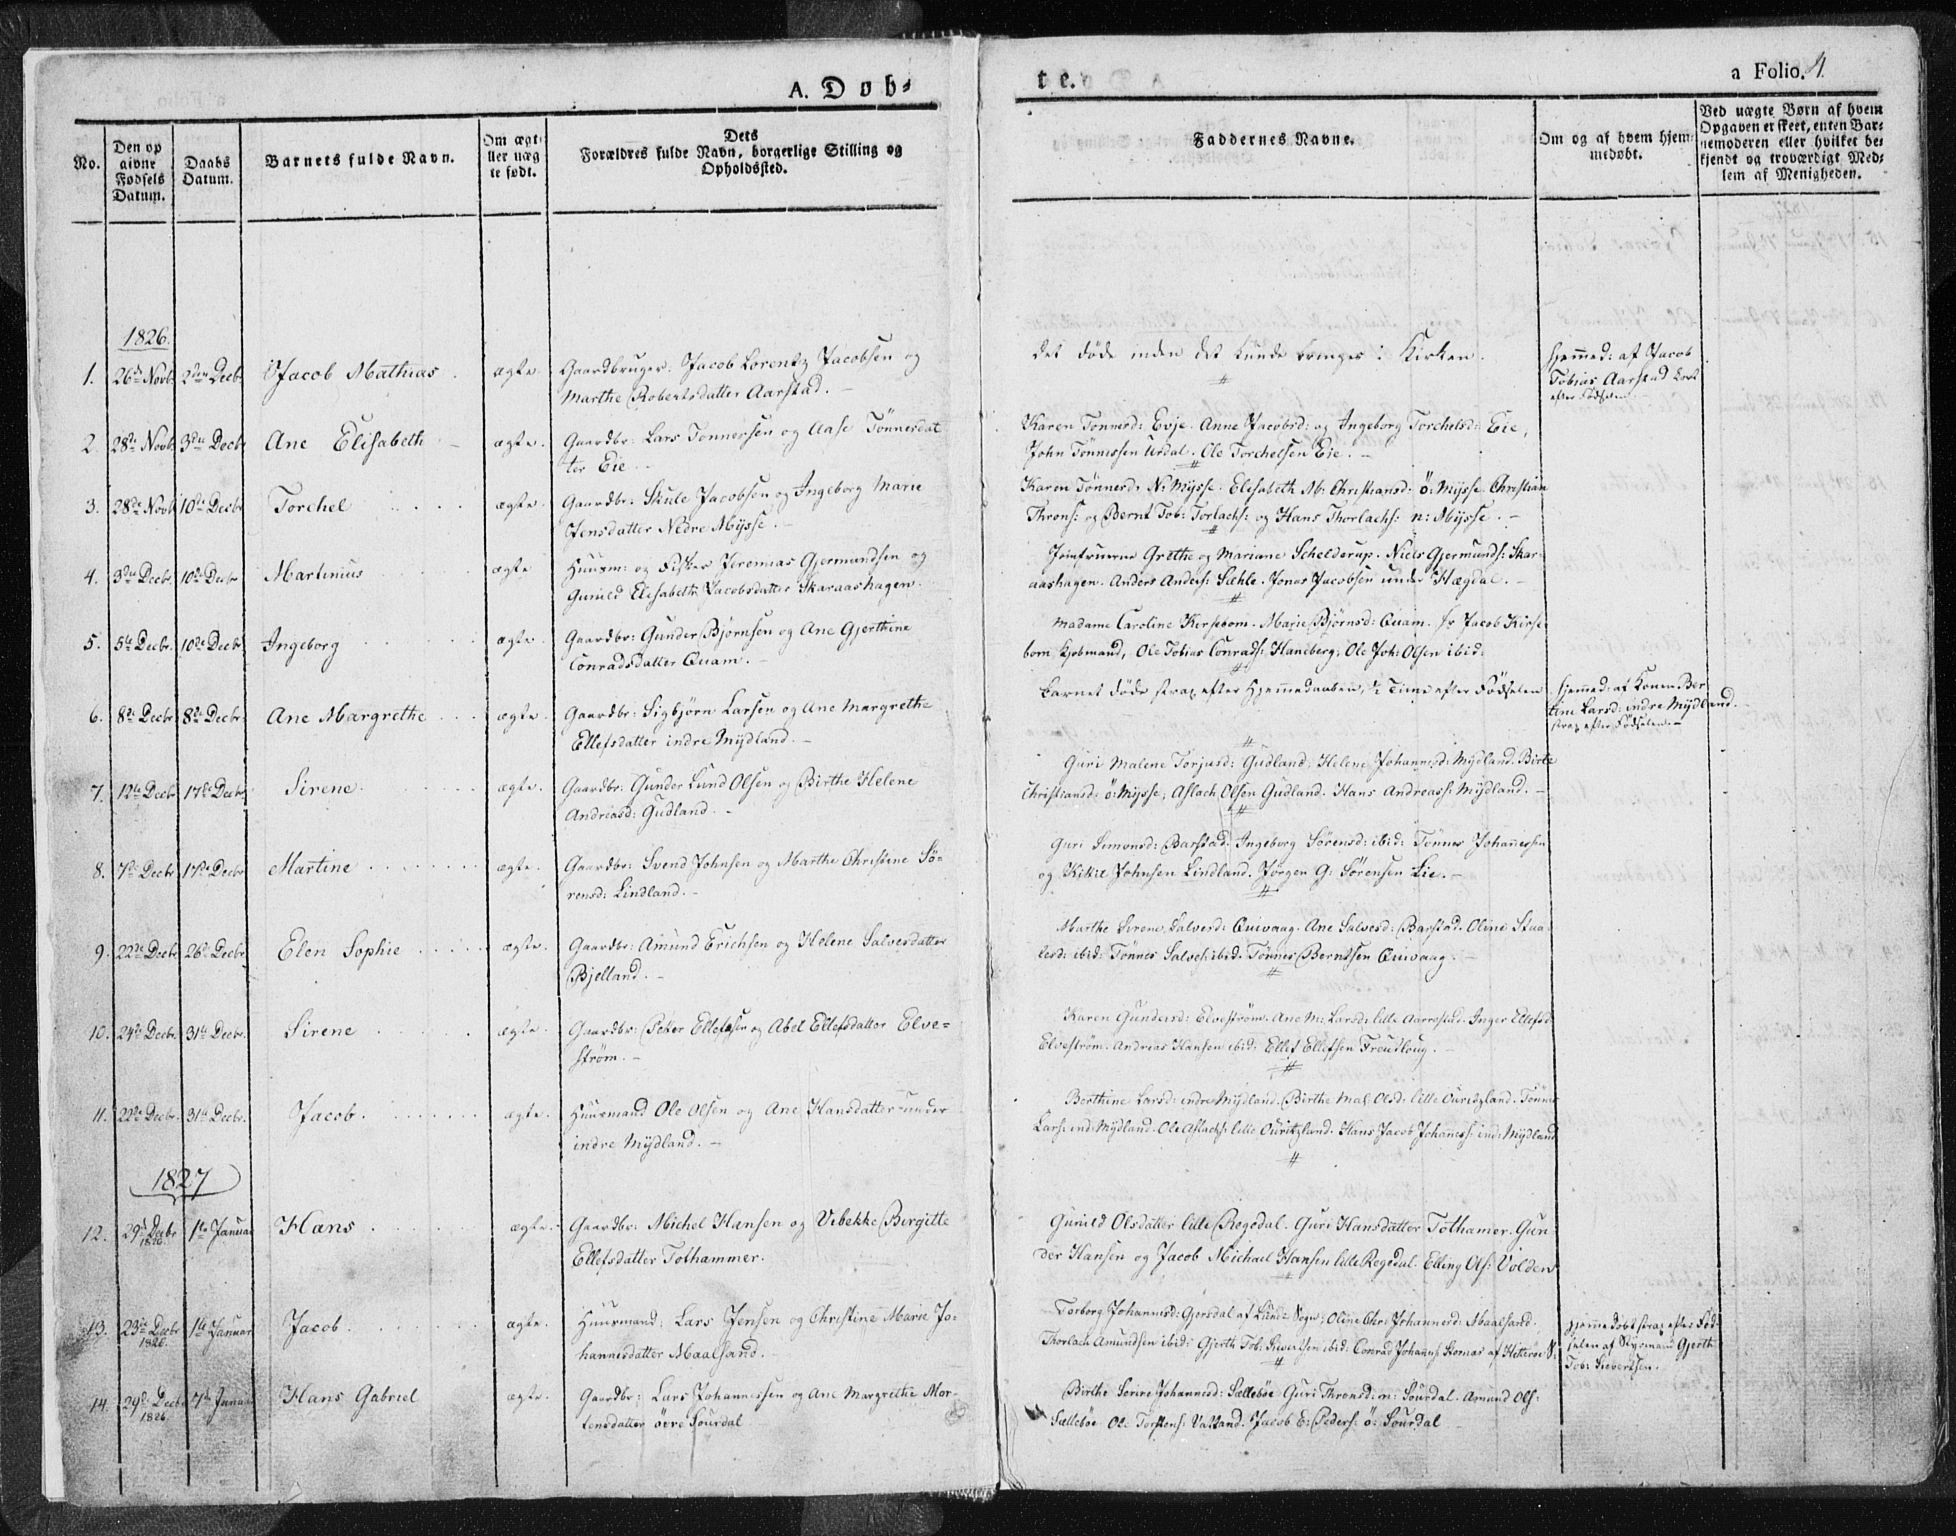 A. Døb-
te.
a Folio. 4.
No.
Den op
givne
Fødsels
Datum.
Daabs
Datum.
Barnets fulde Navn.
Om ægte
eller uæg
te født.
Dets
Forældres fulde Navn, borgerlige Stilling og
Opholdssted.
Faddernes Navne.
Om og af hvem hjem-
medøbt.
Ved uægte Børn af hvem
Opgaven er skeet, enten Bar-
nemoderen eller hvilket be-
kjendt og troværdigt Med-
lem af Menigheden.
1826.
1. 26de Novb. 2den Decbr. Jacob Mathias. ægte. Gaardbruger. Jacob Lorentz Jacobsen og
Marthe Robertsdatter Aarstad.
det døde inden det kunde bringes i Kirken.
Hjemmed: af Jacob
Tobias Aarstad kort
efter Fødselen
2. 28de Novb. 3die Decbr. Ane Elisabeth ægte. Gaardbr: Lars Tønnessen og Aase Tönnesdat
ter Eie.
Karen Tönnesd: Evje. Anne Jacobsd: og Ingeborg Torchelsd: Eie,
John Tönnessen Urdal. Ole Torchelsen Eie.
3. 28de Novb 10de Decbr Torchel ægte. Gaardbr: Skule Jacobsen og Ingeborg Marie
Jensdatter Nedre Mysse.
Karen Tönnesd: N: Mysse. Elisabeth M: Christiansd: ö: Mysse. Christian
Throns: og Bernt Tob: Torlachs: og Hans Thorlachs: n: Mysse.
4. 3die Decbr 10de Decbr Martinius ægte Huusm: og Fisker Jeremias Gjermundsen og
Gunild Elisabeth Jacobsdatter Skaraashagen.
Jomfruerne Grethe og Mariane Schelderup. Niels Gjermunds: Skar-
aashagen. Anders Anders: Sæhle. Jonas Jacobsen under Hægdal.
5. 5te Decbr. 10de Decbr. Ingeborg ægte. Gaardbr: Gunder Bjørnsen og Ane Gjerthine
Conradsdatter Quam.
Madame Caroline Kirsebom. Marie Björnsd: Quam. Hr Jacob Kirse
bom Kjøbmand, Ole Tobias Conrads: Haneberg, Ole Joh: Olsen ibid:
6. 8de Decbr 8de Decbr. Ane Margrethe ægte. Gaardbr: Sigbjörn Larsen og Ane Margrethe
Ellefsdatter indre Mydland.
Barnet døde strax efter Hjemmedaaben, ½ Time efter Fødselen
Hjemmed: af Konen Ber
tine Larsd: indre Mydland.
strax efter Fødselen.
7. 12te Decbr 17de Decbr Sirene. ægte. Gaardbr: Gunder Lund Olsen og Birthe Helene
Andreasd: Gudland.
Guri Malene Torjusd: Gudland, Helene Johannesd: Mydland. Birte
Christiansd: ö: Mysse, Aslach Olsen Gudland. Hans Andreass: Mydland.
8. 7de Decbr 17de Decbr Martine ægte. Gaardbr: Svend Johnsen og Marthe Christine Sö-
rensd: Lindland.
Guri Simonsd: Barstad. Ingeborg Sörensd: ibid: Tönnes Johannesen
og Kittil Johnsen Lindland. Jörgen G: Sörensen Lie.
9. 22de Decbr 26de Decbr. Elen Sophie ægte. Gaardbr: Amund Erichsen og Helene Salvesdatter
Bjelland.
Marthe Sirene Salvesd: Quivaag. Ane Salvesd: Barstad. Oline Staa
lesd: ibid: Tönnes Salves: ibid. Tönnes Berntsen Quivaag.
10. 24de Decbr. 31te Decbr. Sirene ægte. Gaardbr: Peter Ellefsen og Abel Ellefsdatter Elve-
ström.
Karen Gundersd: Elveström. Ane M: Larsd: lille Aarrestad. Inger Ellefsd
Elveström. Andreas Hansen ibid: Ellef Ellefsen Frøutloug.
11. 22de Decbr. 31te Decbr. Jacob. ægte. Huusmand Ole Olsen og Ane Hansdatter under
indre Mydland.
Berthine Larsd: indre Mydland. Birthe Mal: Olsd: lille Ouritzland. Tönnes
Lars: ind: Mydland. Ole Aslachs: lille Ouritzland. Hans Jacob Johaness: ind: Mydland
1827
12. 29de Decbr 1826. 1te Januar Hans ægte. Gaardbr: Michel Hansen og Vibekke Birgitte
Ellefsdatter Tothammer.
Gunild Olsdatter lille Regedal. Guri Hansdatter Tothamer. Gun
der Hansen og Jacob Michael Hansen lille Regedal. Elling Ols: Volden
13. 23de Decbr 1826. 1te Januar Jacob. ægte. Huusmand: Lars Jensen og Christine Marie Jo-
hannesdatter Maalsand.
Torborg Johannesd: Gjersdal af Lund Sogn; Oline Chr: Johannesd: Maalsand.
Thorlach Amundsen ibid: Gjerth Tob: Sivertsen ibid: Conrad Johans: Stornæs af Hitterøe S:
hjemmedøbt strax efter Fød
selen af Styrmand Gjerth
Tob: Sivertsen.
14. 29de Decbr 1826. 7de Januar Hans Gabriel ægte. Gaardbr: Lars Johannessen og Ane Margrethe Mor-
tensdatter övre Sourdal
Birthe Serine Johannesd: Sællebøe Guri Thronsd: n: Sourdal. Amund Ols:
Sællebøe Ole Torstens: Vatland. Jacob E: Peders: ö: Sourdal